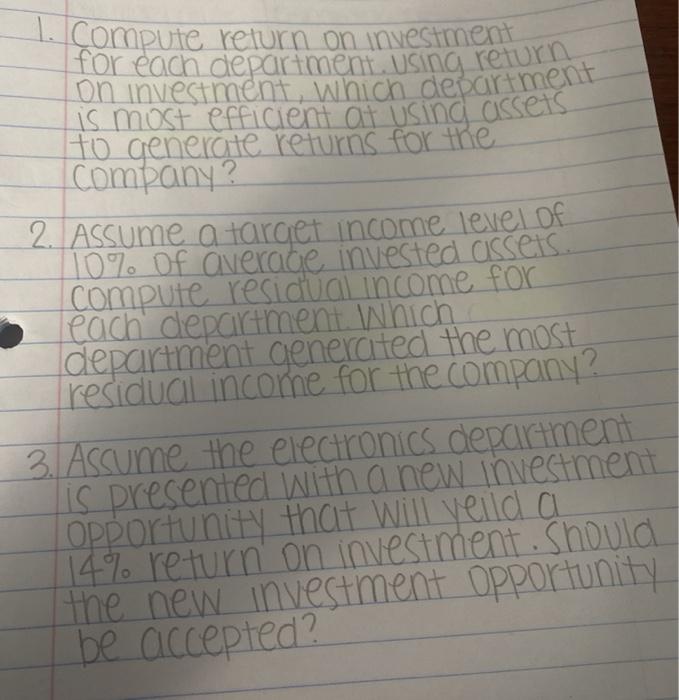 1. Compute return on investment
for each department. Using return
on investment, which department
is most efficient at using assets
to generate returns for the
company?
2. Assume a target income level of
10% of average invested assets.
Compute residual income for
each department. Which
department generated the most
residual income for the company?
3. Assume the electronics department
is presented with a new investment
opportunity that will yeild a
14% return on investment. Should
the new investment opportunity
be accepted?